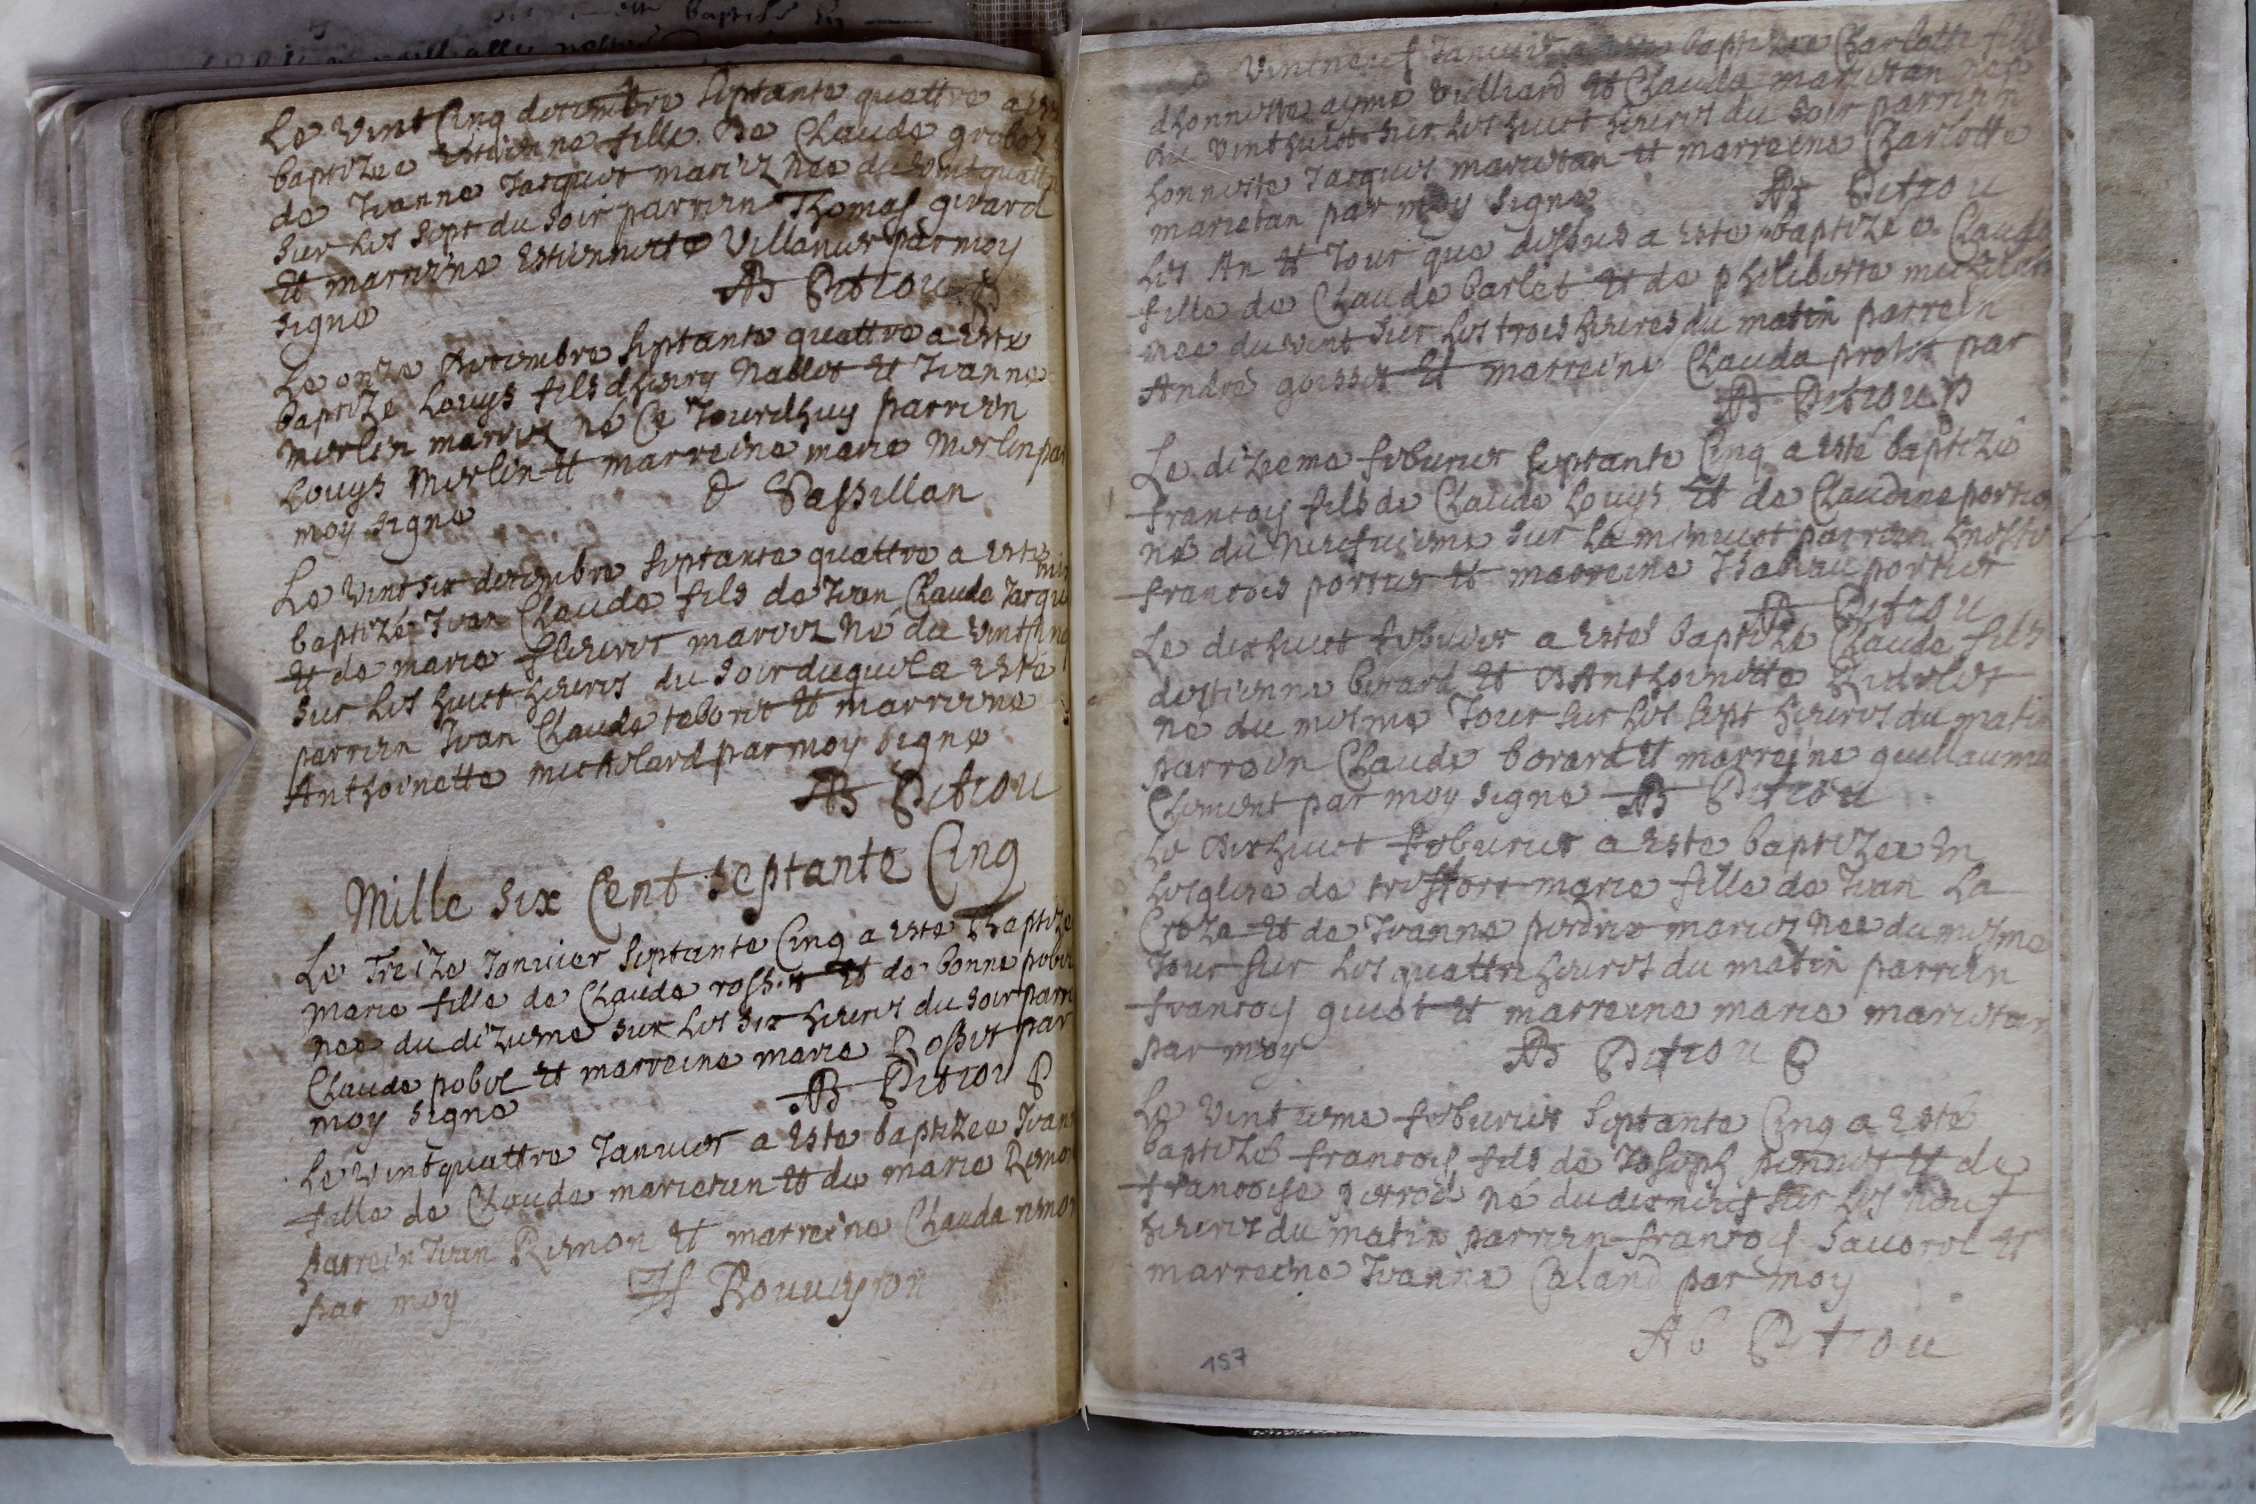 Le vint Cinq decembre septante quattre a este
baptizee Estiene fille de Claude groboz
de Jeanne Jacquet mariez nee du vintquattre
sur les sept du soir parrein Thomas girard
et marreine Estiennette Villamet par moy
signe AB Petiou
Le onze decembre septante quattre a este
baptize Louys fils dhenry Nablot et Jeanne
Merlin mariez né Ce Jourdhuy parrein
Louys Merlin et marreine marie Merlin par
moy signe Passillan
Le vintsix decembre septante quattre a este
baptizé Jean Claude fils de Jean Claude Jacqu
et de marie fleuret mariez né du vintcinq
sur les huict heures du soir duquel a este
parrein Jean Claude taboret et marreine
Anthoinette michelard par moy signe
AB Petiou
Mille six Cent septante Cinq
Le Treize Janvier septante Cinq a este baptizee
marie fille de Claude rosset et de bonne pobel
nee du dizieme sur les six heures du soir parrein
Claude pobel et marreine marie Rosset par
moy signe AB Petiou
Le vintquattre Janvier a este baptizee Jeanne
fille de Claude marietan et de marie Remon
parrein Jean Remon et marreine Clauda remon
par moy Rouveyron
Vintneuf Janvier a este baptizee Charlotte fille
dhonneste ayme Vulliard et Clauda marietan nee
du vinthuict sur les huict heures du soir parrein
honneste Jacques marietan et marreine Charlotte
marietan par moy signe AB Petiou
Les An et Jour que dessus a este baptizee Clauda
fille de Claude barlet et de philiberte michelard
nee du vint sur les trois heures du matin parrein
André goisset et marreine Clauda probst par
AB Petiou
Le dizieme feburier septante Cinq a este baptizé
francois fils de Claude Louys et de Claudine portier
né du neufvieme sur la minuict parrein honeste
francois portier et marreine Isabeau portier
AB Petiou
Le dixhuict febvrier a este baptizé Claude fils
destienne berard et dAnthoinette
né du mesme Jour sur les sept heures du matin
parrein Claude berard et marreine guillauma
Clement par moy signe AB Petiou
Le dixhuict feburier a este baptizee en
lesglise de treffort marie fille de Jean La
Croze et de Jeanne perdrix mariez nee du mesme
Jour sur les quattre heures du matin parrein
francois guiot et marreine marie marietan
par moy AB Petiou
Le Vintieme feburier septante Cinq a esté
baptizé francois fils de Joseph pennet et de
francoise perrod né du dixneuf sur les neuf
heures du matin parrein francois Sauorol et
marreine Jeanne Caland par moy
AB Petiou
157